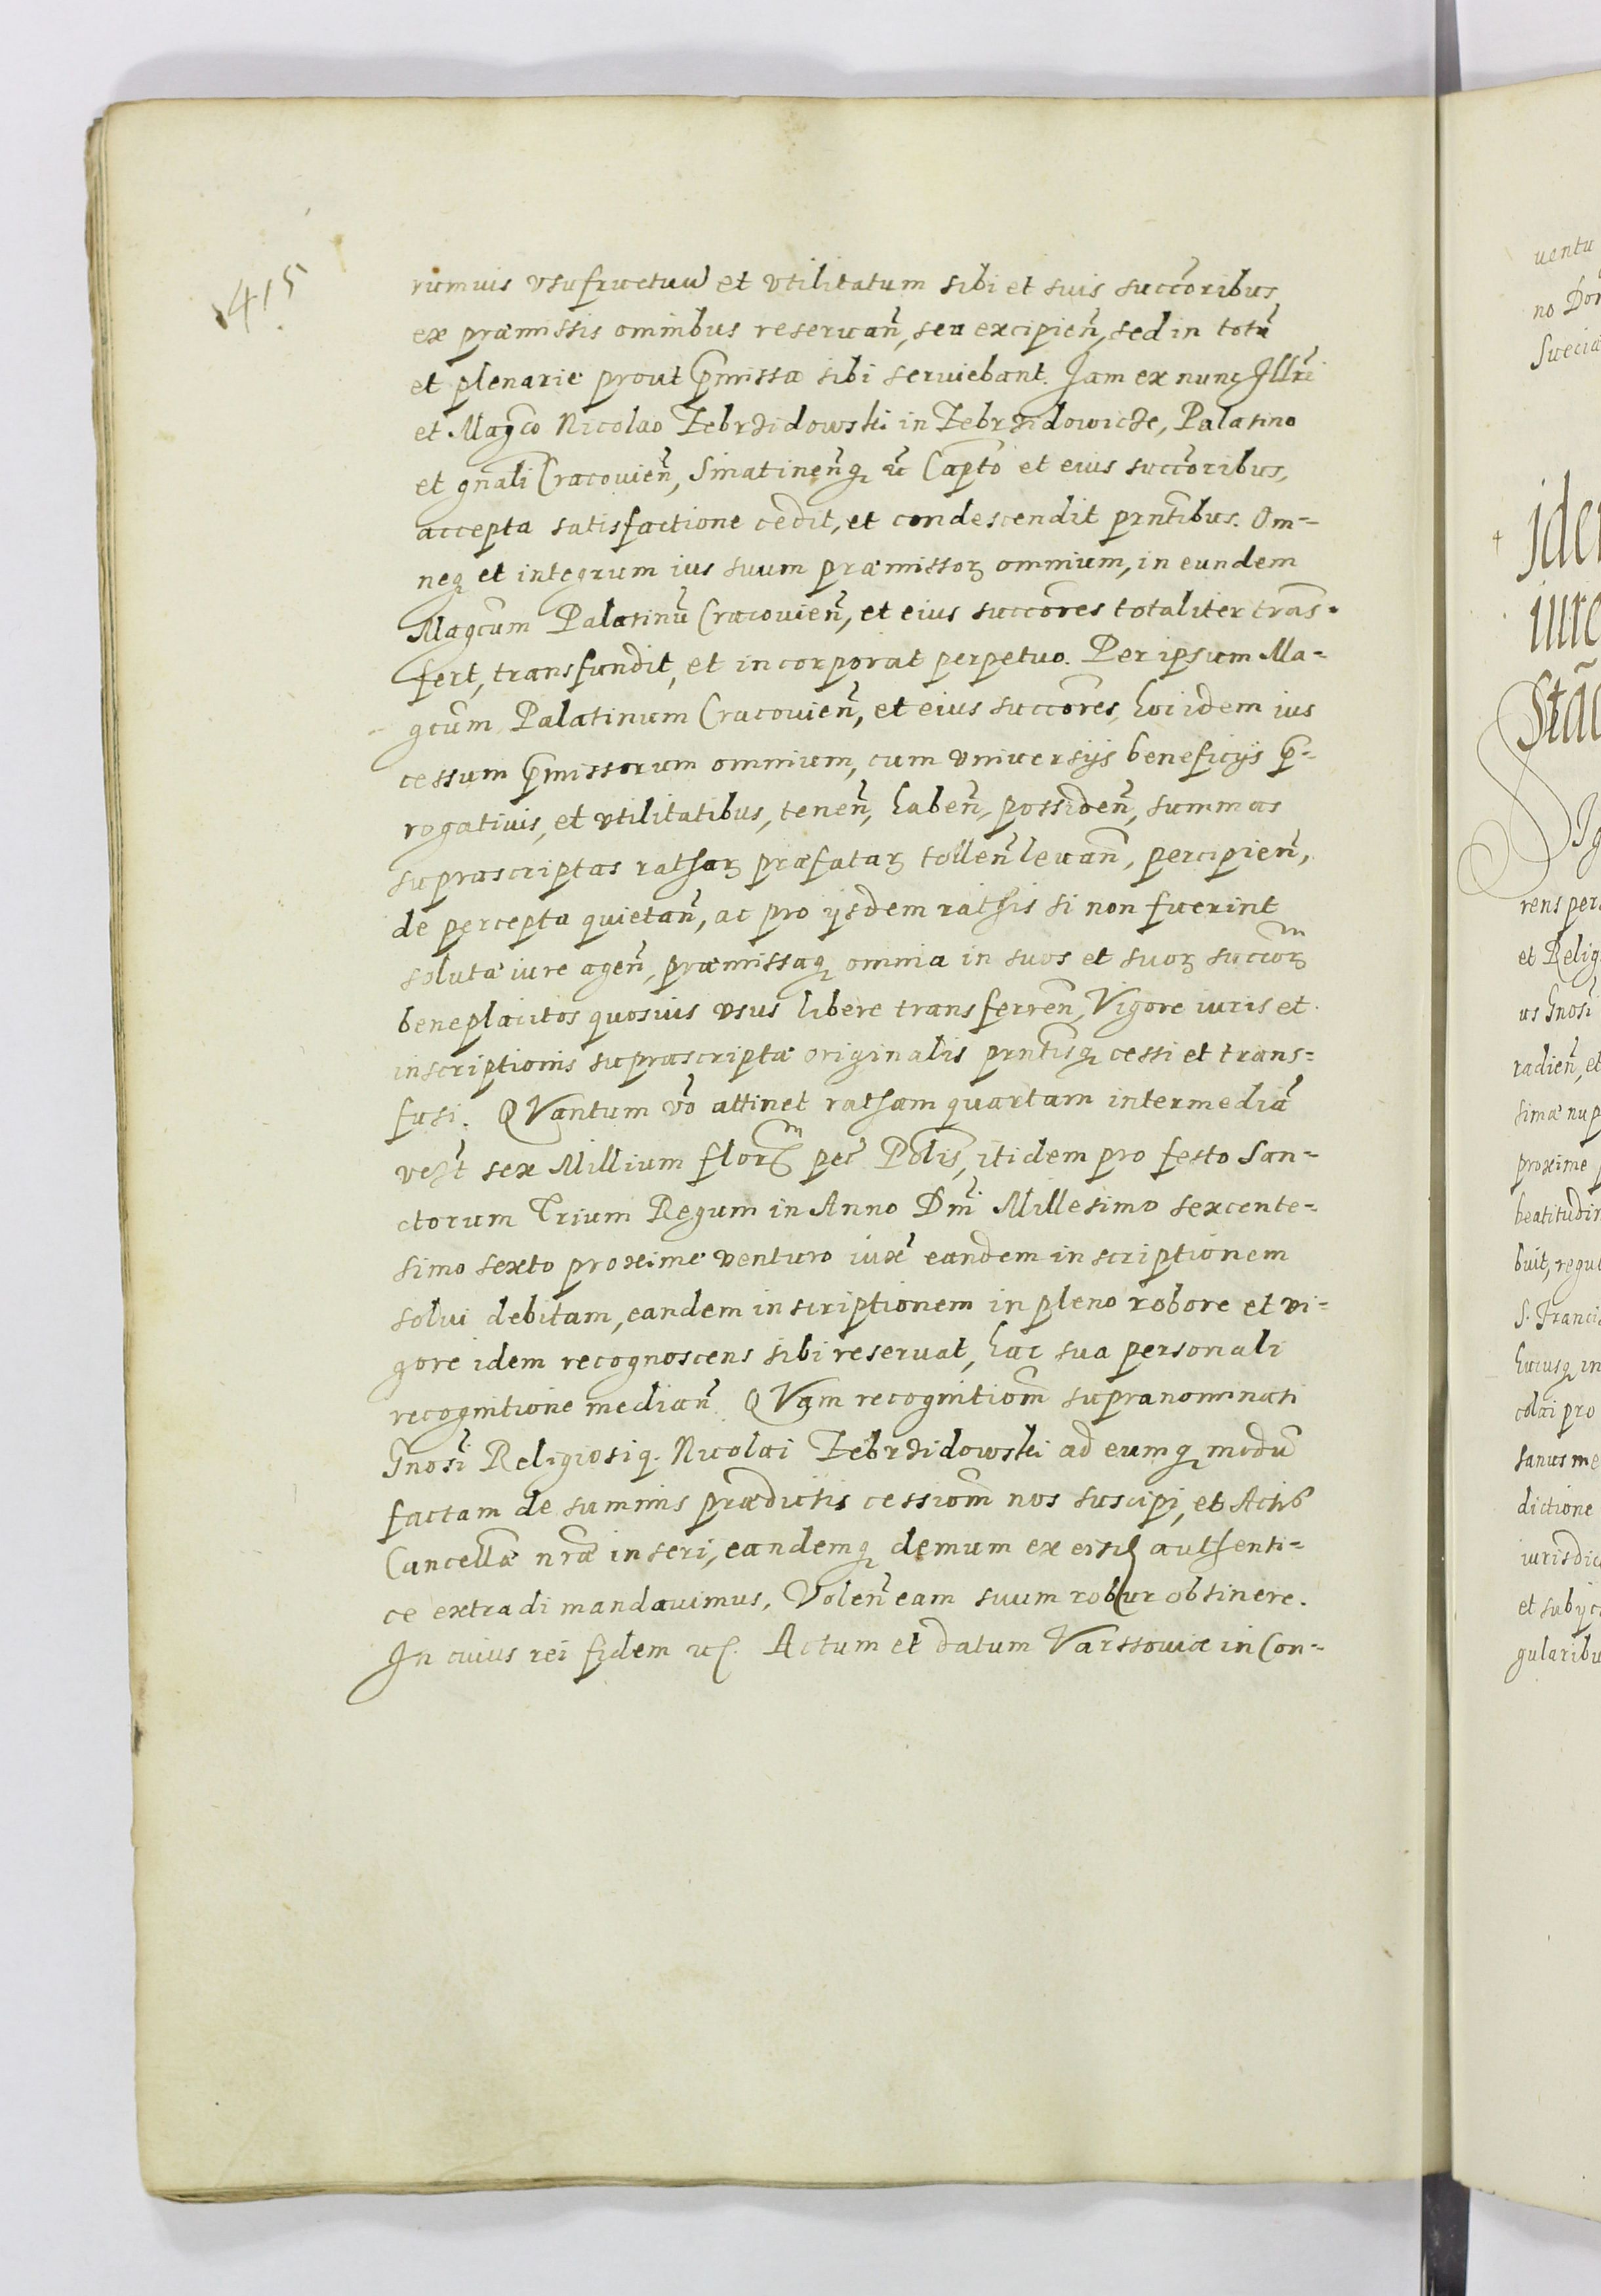 415
rumuis vsufructuũ et vtilitatum sibi et suis succoribus
ex præmissis omnibus reseruañ, seu excipieñ, sed in totũ
et plenarie prout p̃missa sibi seruiebant. Jam ex nunc Jllri
et Magco Nicolao Zebrzidowski in Zebrzidowicze, Palatino
et gnali Cracouieñ, Sniatineñq; etc Capto et eius succoribus,
accepta satisfactione cedit, et condescendit prntibus. Om=
neq; et integrum ius suum præmissoꝝ omnium, in eundem
Magcum Palatinũ Cracouieñ, et eius succores totaliter trans=
fert, transfundit, et incorporat perpetuo. Per ipsum Ma=
gcum Palatinum Cracouieñ, et eius succores, hoc idem ius
cessum p̃missorum omnium, cum vniuersijs beneficijs p̃=
rogatiuis, et vtilitatibus, teneñ, habeñ, possideñ, summas
suprascriptas rathaꝝ præfataꝝ tolleñ leuañ, percipieñ,
de percepta quietañ, ac pro ijsdem rathis si non fuerint
solutæ iure ageñ, præmissaq; omnia in suos et suoꝝ succoꝝ
beneplacitos quosuis vsus libere transferreñ, Vigore iuris et
inscriptionis suprascriptæ originalis prntisq; cessi et trans=
fusi. QVantum vo attinet ratham quartam intermediã
velt sex Millium florm pec Polis, itidem pro festo San=
ctorum Trium Regum in Anno Dni Millesimo sexcente=
simo sexto proxime venturo iux eandem inscriptionem
solui debitam, eandem inscriptionem in pleno robore et vi=
gore idem recognoscens sibi reseruat, hac sua personali
recognitione mediañ. QVam recognitiom supranominati
Gnosi Religiosiq. Nicolai Zebrzidowski ad eumq; modũ
factam de summis prædictis cessiom nos suscipi, et Actis
Cancellæ nræ inseri, eandemq; demum ex eisd authenti=
ce extradi mandauimus, Voleñ eam suum robur obtinere.
In cuius rei fidem etc. Actum et datum Varssouiæ in Con=
uentu
no Dom
Sueciæ
iure
rens per
et Relig
us Gnosi
radieñ, et
simæ nup
proxime
beatitudin
buit, regul
S. Francis
huiusq; in
colai pro
sanus me
dictione
iurisdic
et subijc
gularibu